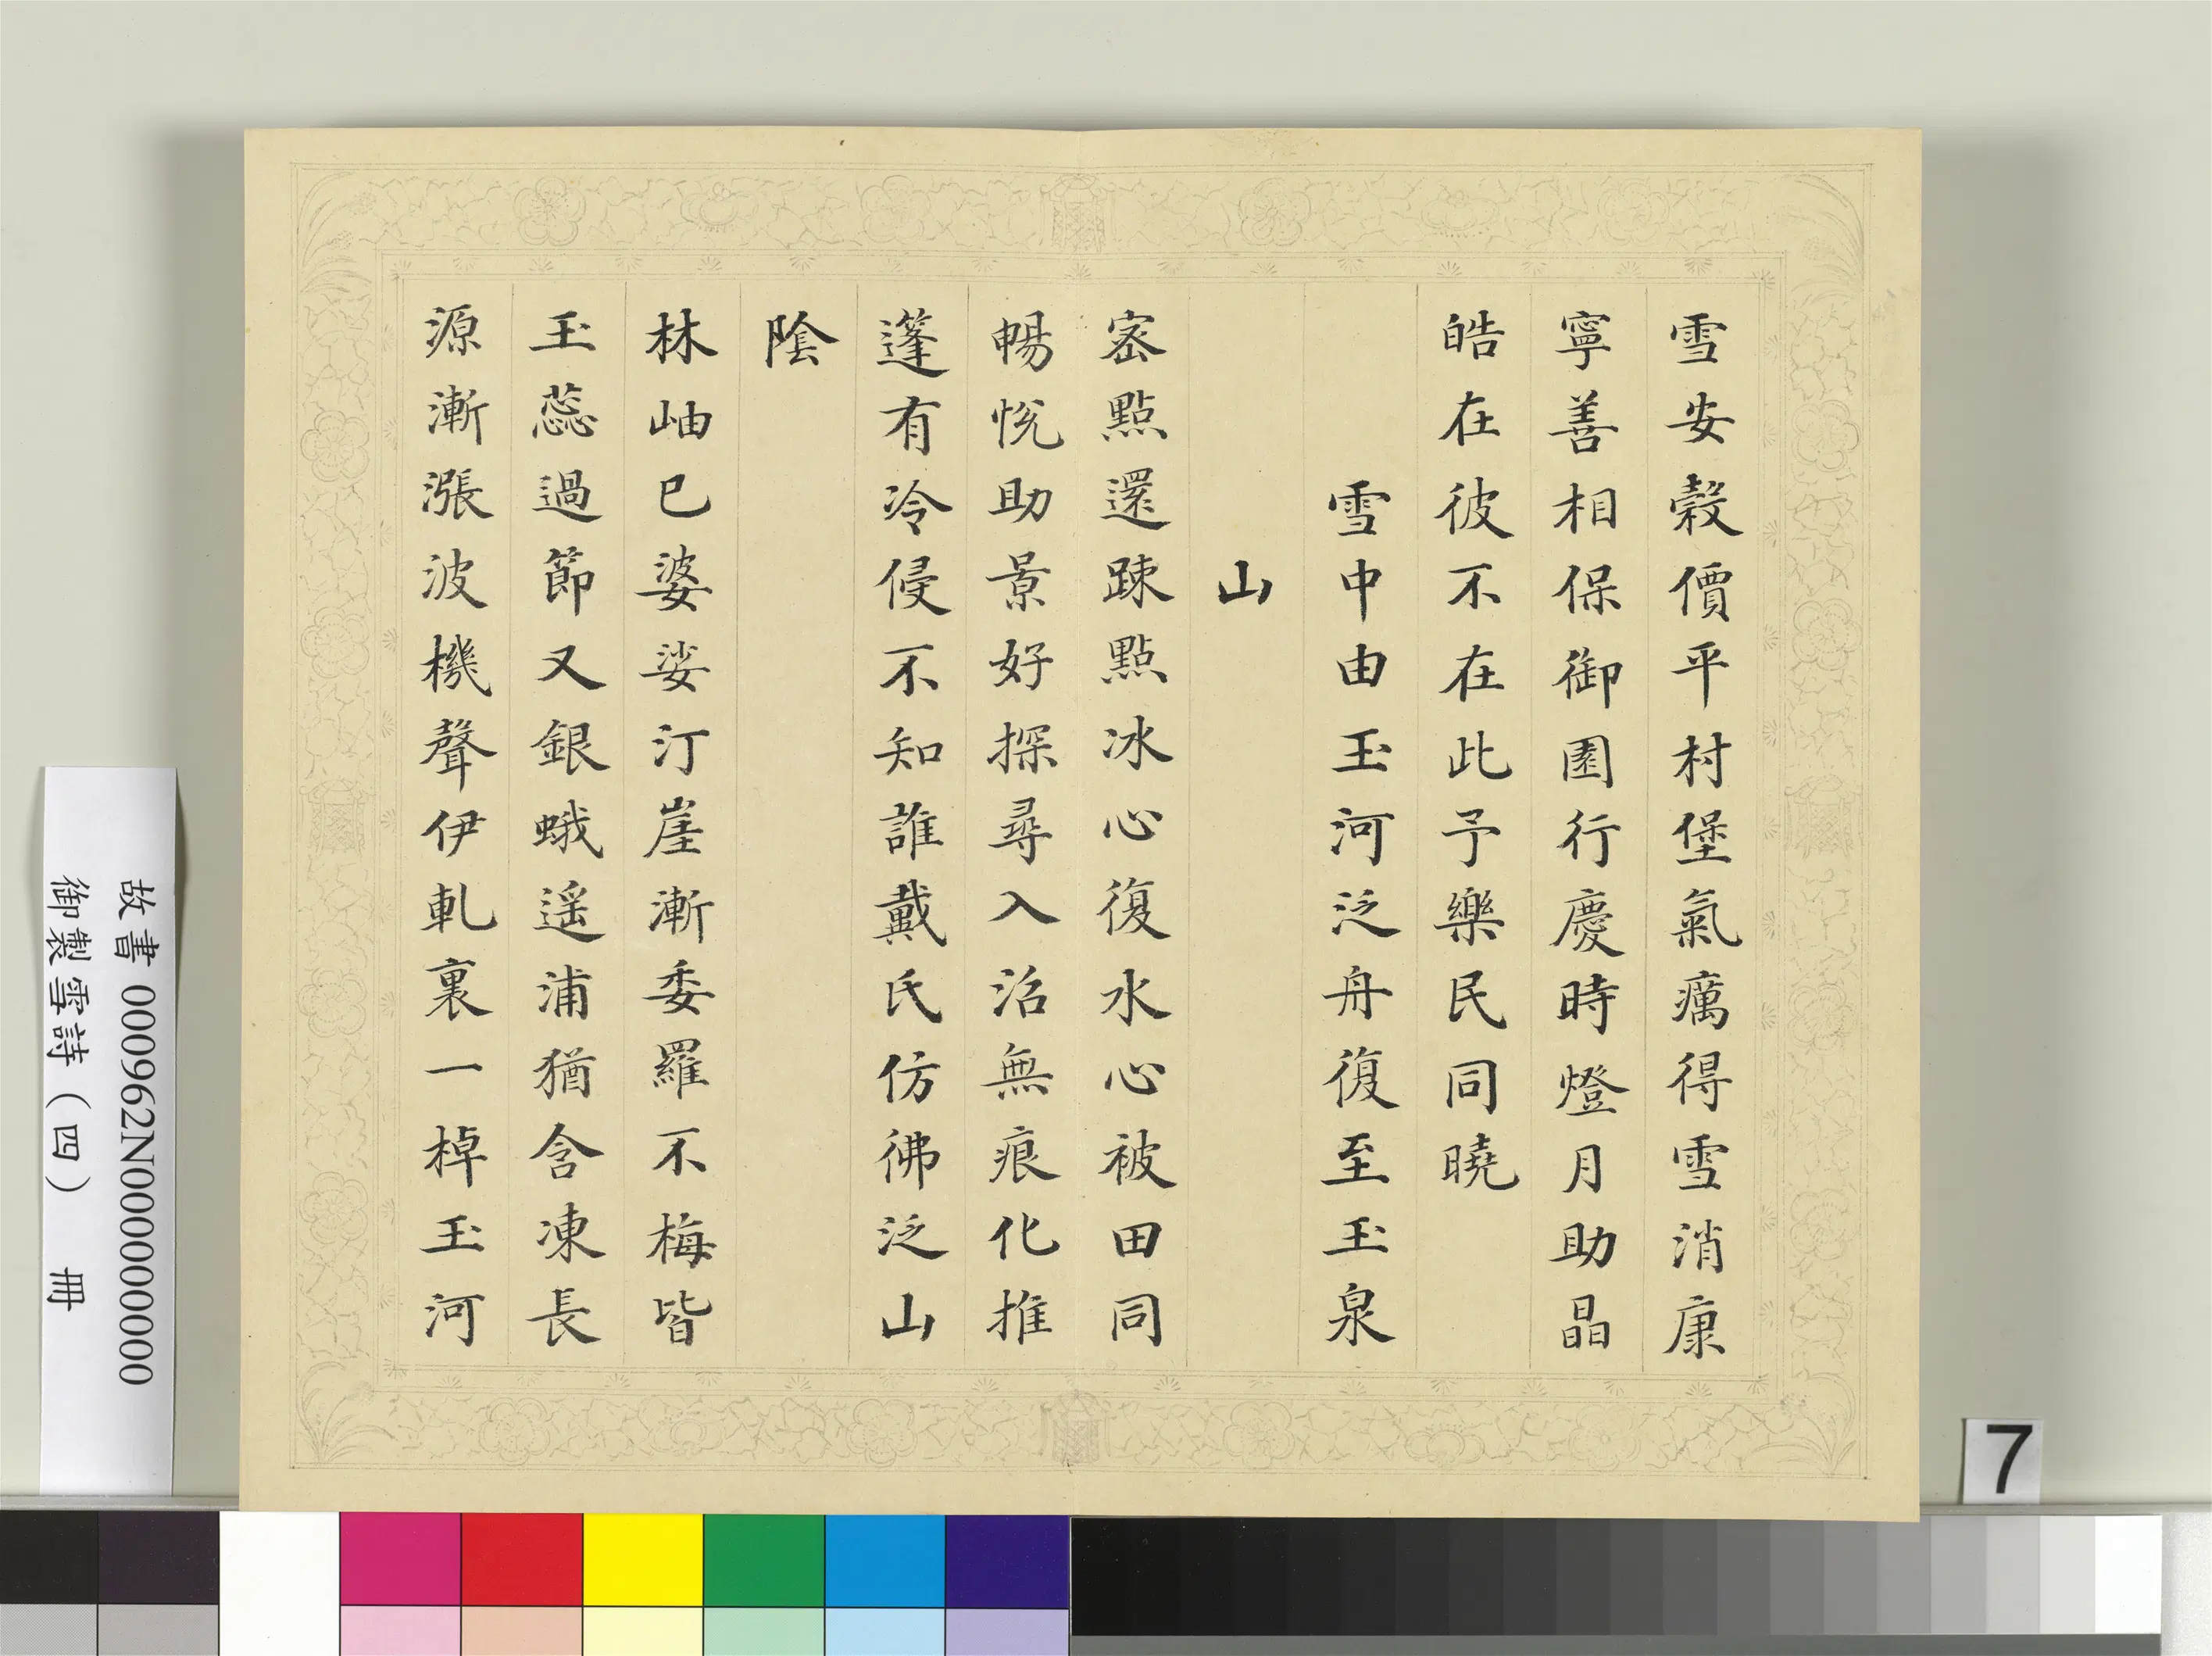 雪安穀價平村堡氣癘得雪消康
寧善相保御園行慶時燈月助晶
皓在彼不在此予樂民同曉
雪中由玉河泛舟復至玉泉
山
密點還踈點冰心復水心被田同
暢恱助景好探尋入沿無痕化推
蓬有冷侵不知誰戴氏仿彿泛山
陰
林岫已婆娑汀崖漸委羅不梅皆
玉蕊過節又銀蛾遥浦猶含凍長
源漸漲波機聲伊軋裏一棹玉河
故書 000962N000000000
御製雪詩（四） 冊
7